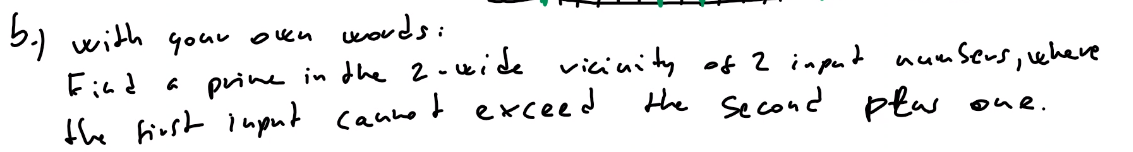 b.) with your own words:
Find a prime in the 2-wide vicinity of 2 input numbers, where
the first input cannot exceed the second plus one.